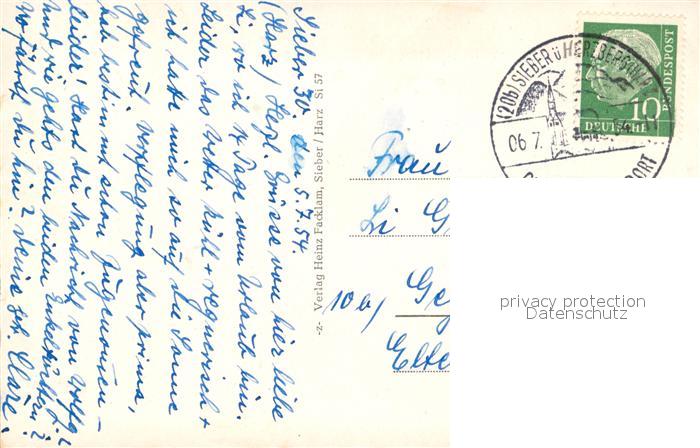 Sieber 30 den 5.7.54.
(Harz) Herzl. Grüsse von hier liebe
Li, wo ich 14 Tage vom Urlaub bin.
Leider das Wetter kühl + regnerisch +
ich hatte mich so auf die Sonne
gefreut. Verpflegung aber prima,
hab bestimmt schon zugenommen –
leider! Hast du Nachricht von
und wie gehts den beiden Enkelkindern?
Wo fährst du hin? Deine
-z- Verlag Heinz Facklam, Sieber / Harz Si 57
(20b) SIEBER ü HERZBERG
06.7.
ORT
10
DEUTSCHE
BUNDESPOST
Frau
Li G
10a)
Elte
privacy protection
Datenschutz